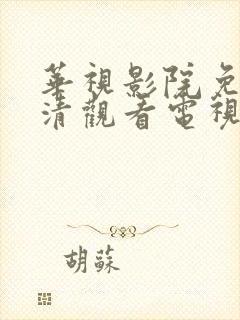 華視影院免
清觀看電視
胡蘇